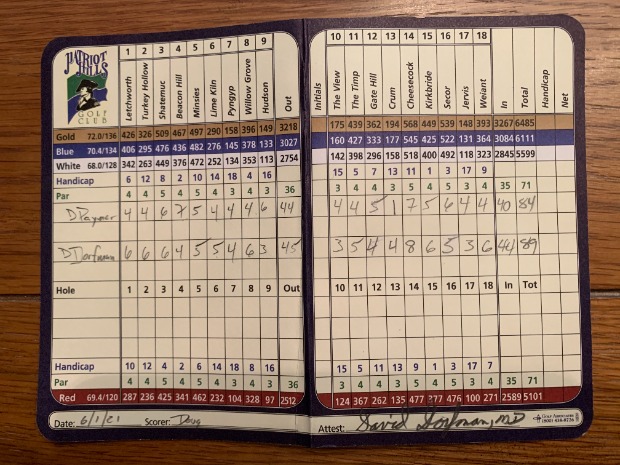 PATRIOT HILLS
GOLF CLUB
1 2 3 4 5 6 7 8 9
Letchworth Turkey Hollow Shatemuc Beacon Hill Minsies Lime Kiln Pyngyp Willow Grove Hudson Out
Gold 72.0/136 426 326 509 467 497 290 158 396 149 3218
Blue 70.4/134 406 295 476 436 482 276 145 378 133 3027
White 68.0/128 342 263 449 376 472 252 134 353 113 2754
Handicap 6 12 8 2 10 14 18 4 16
Par 4 4 5 4 5 4 3 4 3 36
4 4 6 7 5 4 4 4 6 44
D Dorfman 6 6 6 4 5 5 4 6 3 45
Hole 1 2 3 4 5 6 7 8 9 Out
Handicap 10 12 4 2 6 14 18 8 16
Par 4 4 5 4 5 4 3 4 3 36
Red 69.4/120 287 236 425 341 462 232 104 328 97 2512
Date: 6/1/21 Scorer: Doug
10 11 12 13 14 15 16 17 18
Initials The View The Timp Gate Hill Crum Cheesecock Kirkbride Secor Jervis Weiant In Total Handicap Net
175 439 362 194 568 449 539 148 393 3267 6485
160 427 333 177 545 425 522 131 364 3084 6111
142 398 296 158 518 400 492 118 323 2845 5599
15 5 7 13 11 1 3 17 9
3 4 4 3 5 4 5 3 4 35 71
4 4 5 1 7 5 6 4 4 40 84
3 5 4 4 8 6 5 3 6 44 89
10 11 12 13 14 15 16 17 18 In Tot
15 5 11 13 9 1 3 17 7
3 4 4 3 5 4 5 3 4 35 71
124 367 262 135 477 377 476 100 271 2589 5101
Attest: David Dorfman, MD
Golf Associates